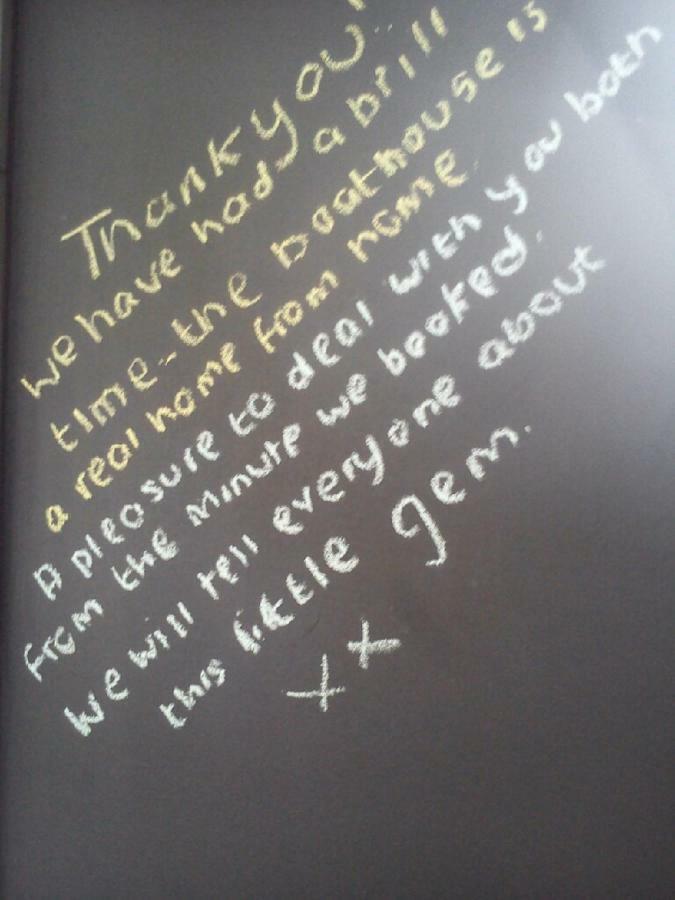 Thank you..!
we have had a brill
time.. the boathouse is
a real home from home.
A pleasure to deal with you both
from the minute we booked.
We will tell everyone about
this little gem.
x x